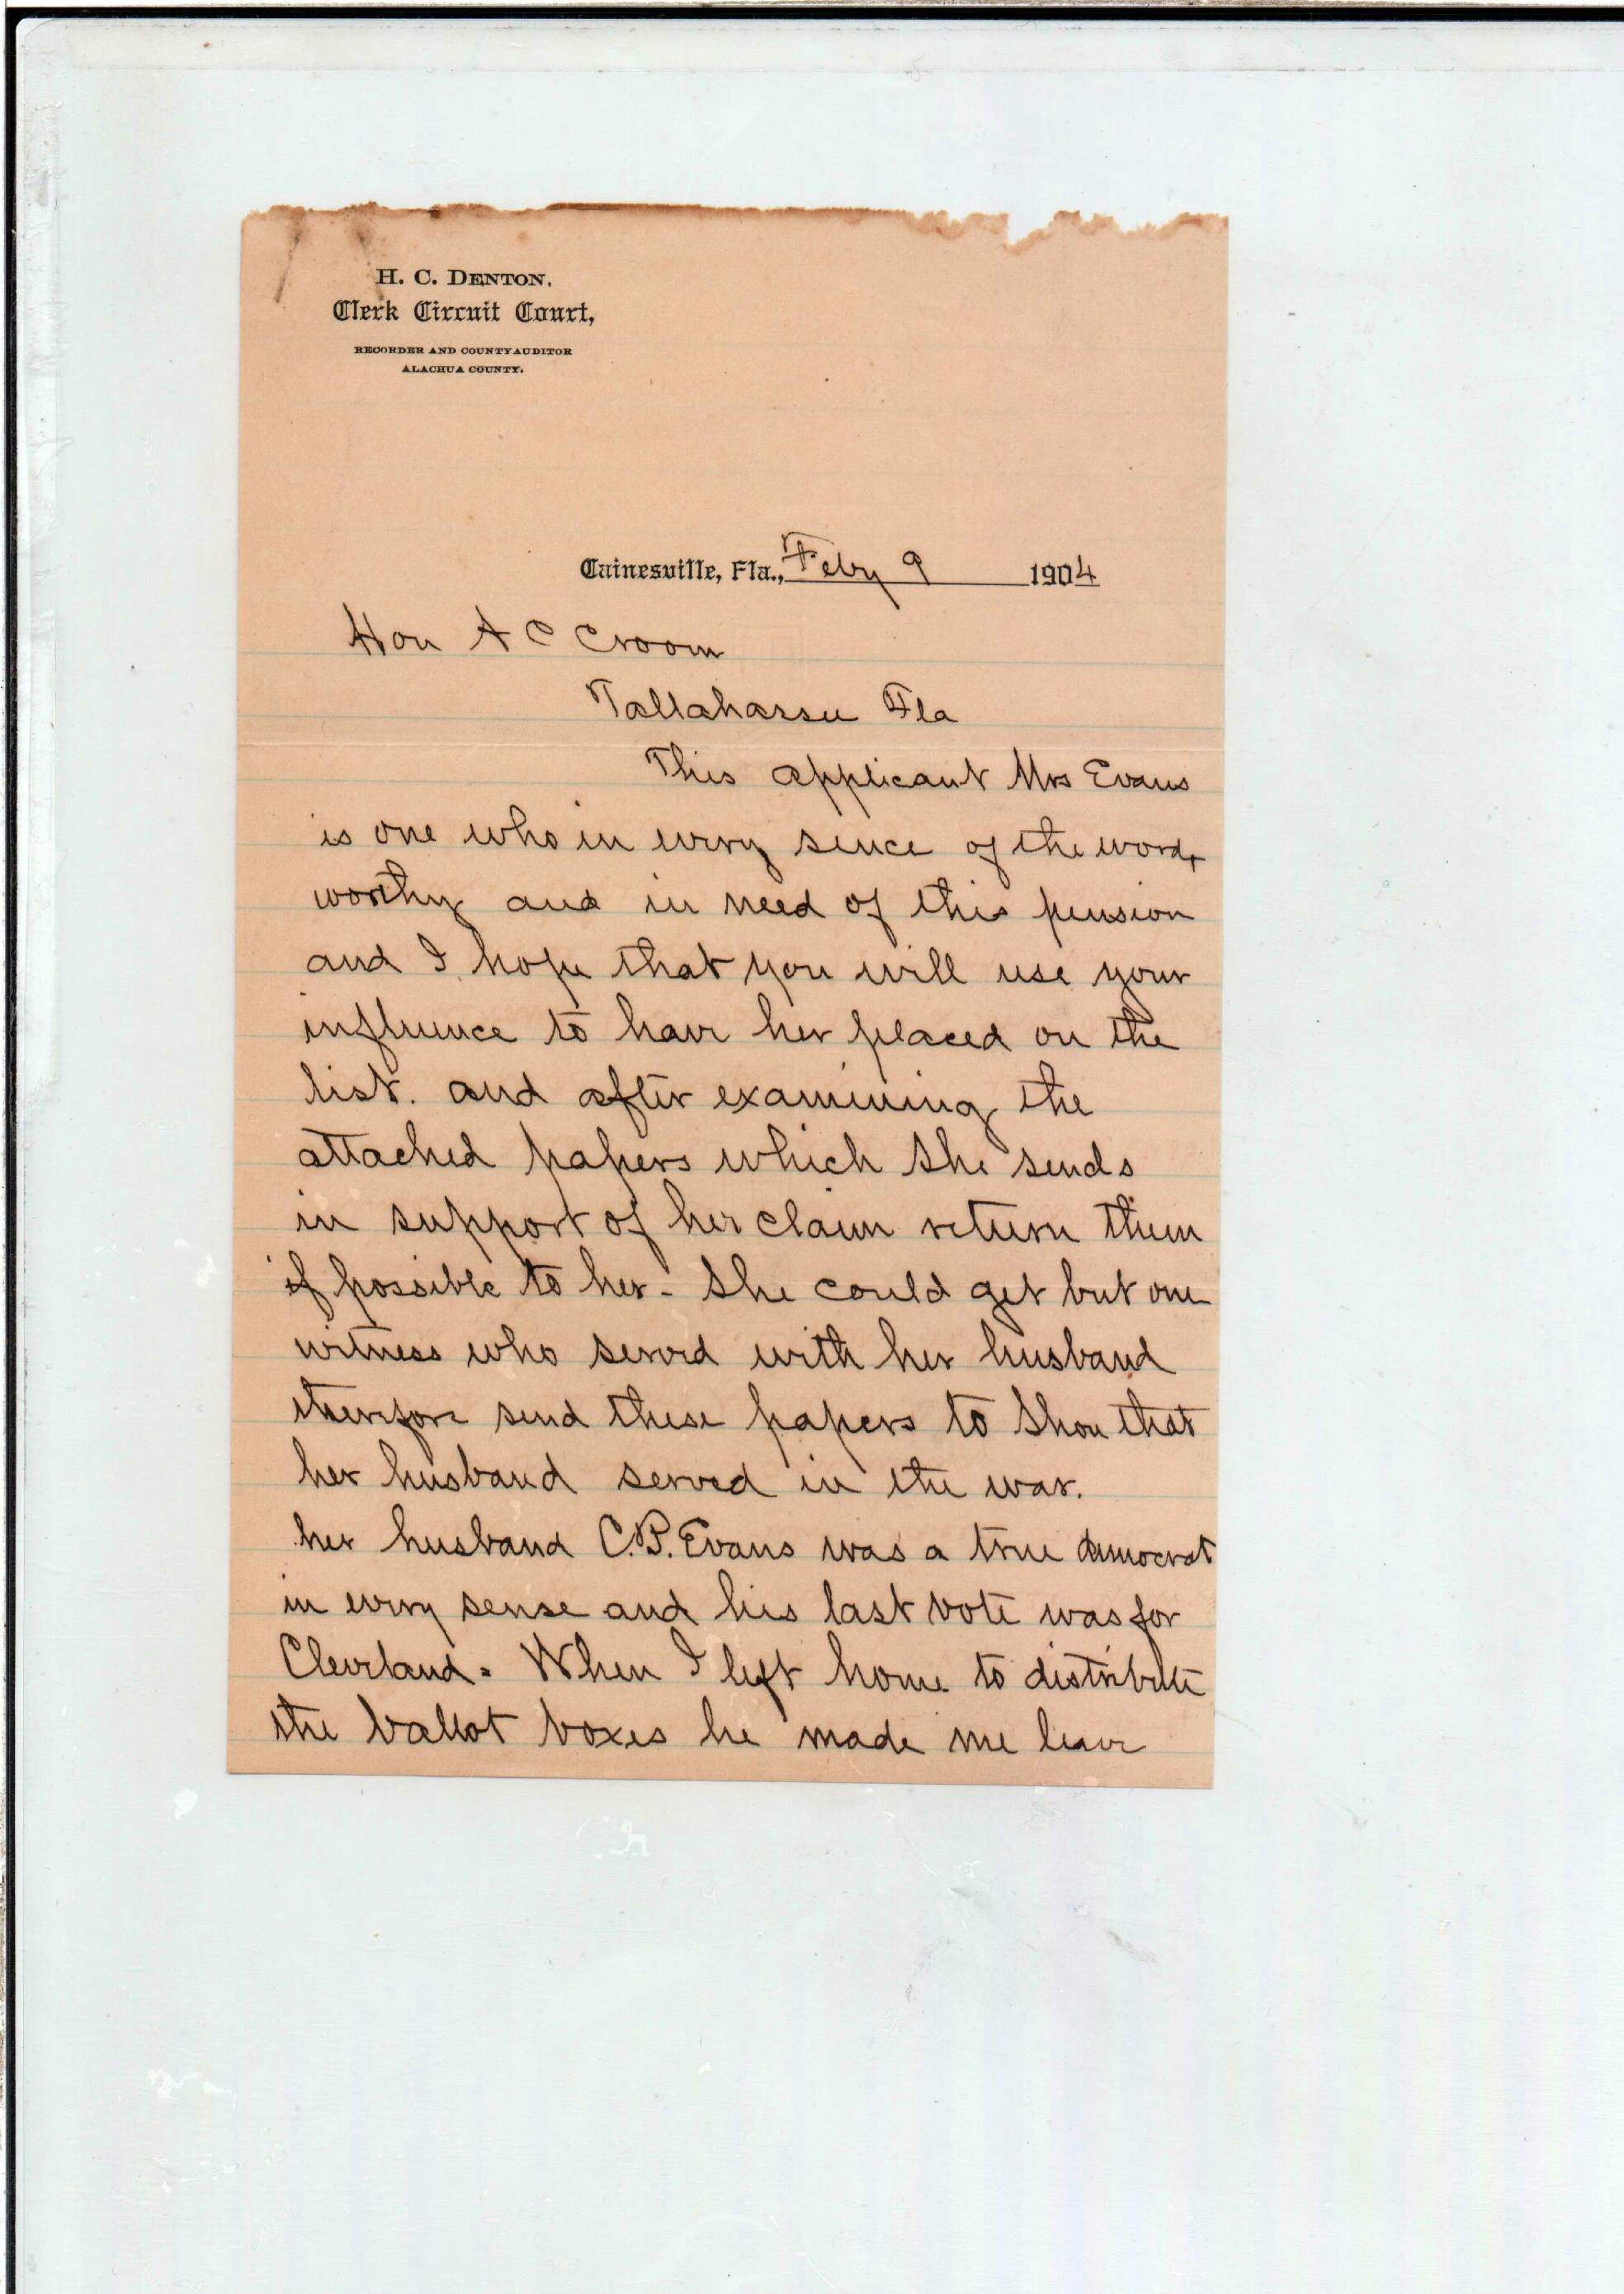 H. C. DENTON,
Clerk Circuit Court,
RECORDER AND COUNTY AUDITOR
ALACHUA COUNTY.
Gainesville, Fla., Feby 9 1904
Hon A C Croom
Tallahassee Fla
This applicant Mrs Evans
is one who in every sence of the word,
worthy and in need of this pension
and I hope that you will use your
influence to have her placed on the
list. and after examining the
attached papers which she sends
in support of her claim return them
if possible to her - She could get but one
witness who served with her husband
therefore send these papers to Show that
her husband served in the war.
her husband C.B. Evans was a true democrat
in every sense and his last vote was for
Cleveland. When I left home to distribute
the ballot boxes he made me leave